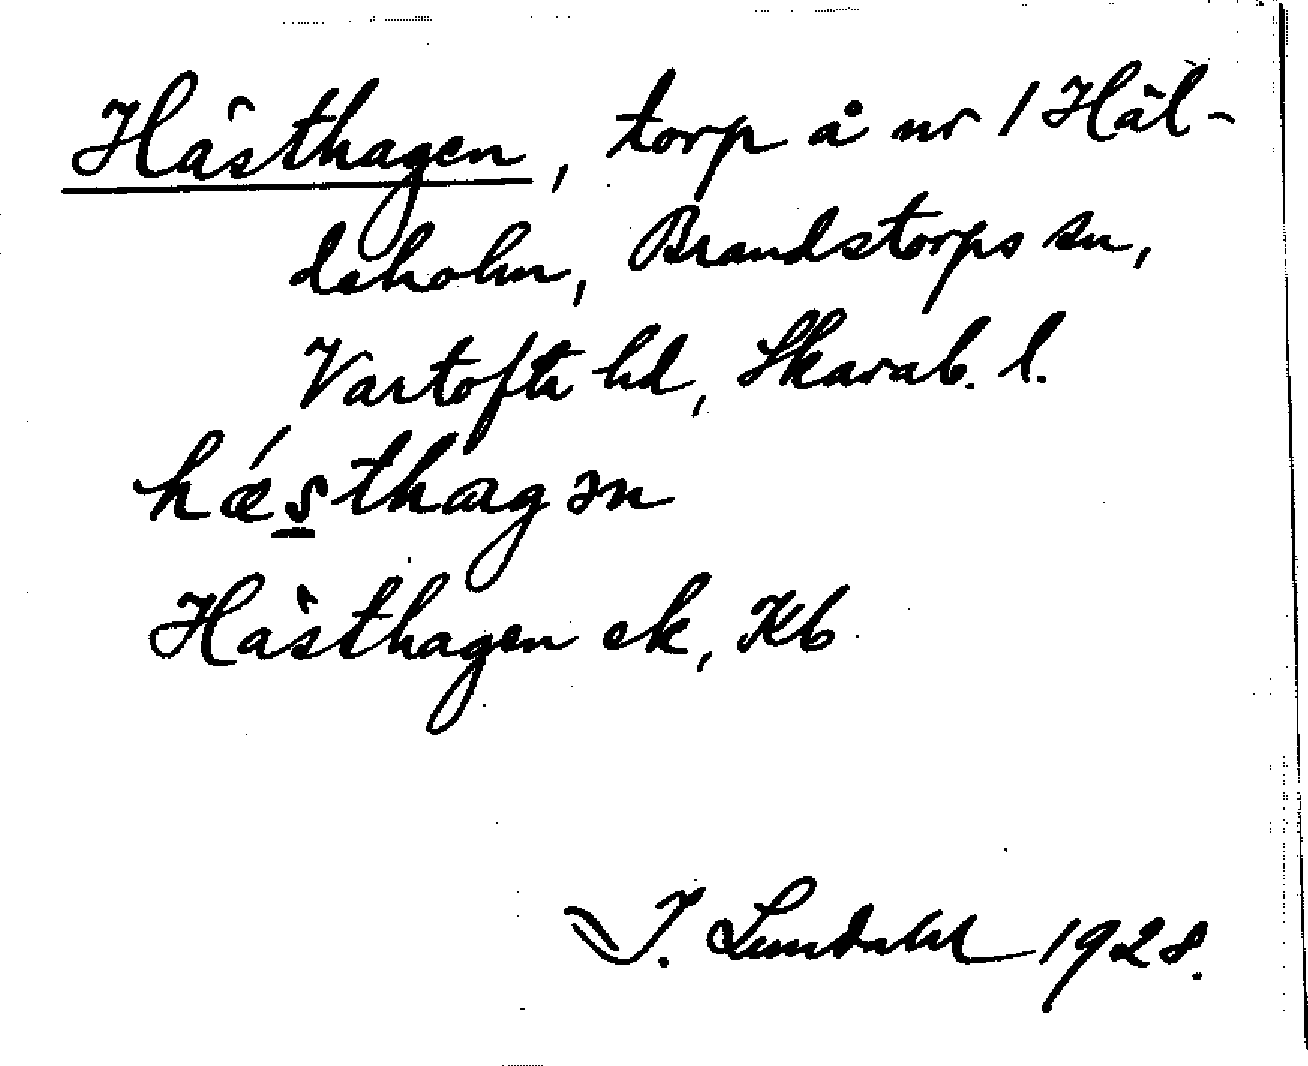 Hästhagen, torp å nr 1 Häl-
deholm, Brandstorps sn,
Vartofta hd, Skarab. l.
hǽsthagən
Hästhagen ek, Kb
I. Lundahl 1928.